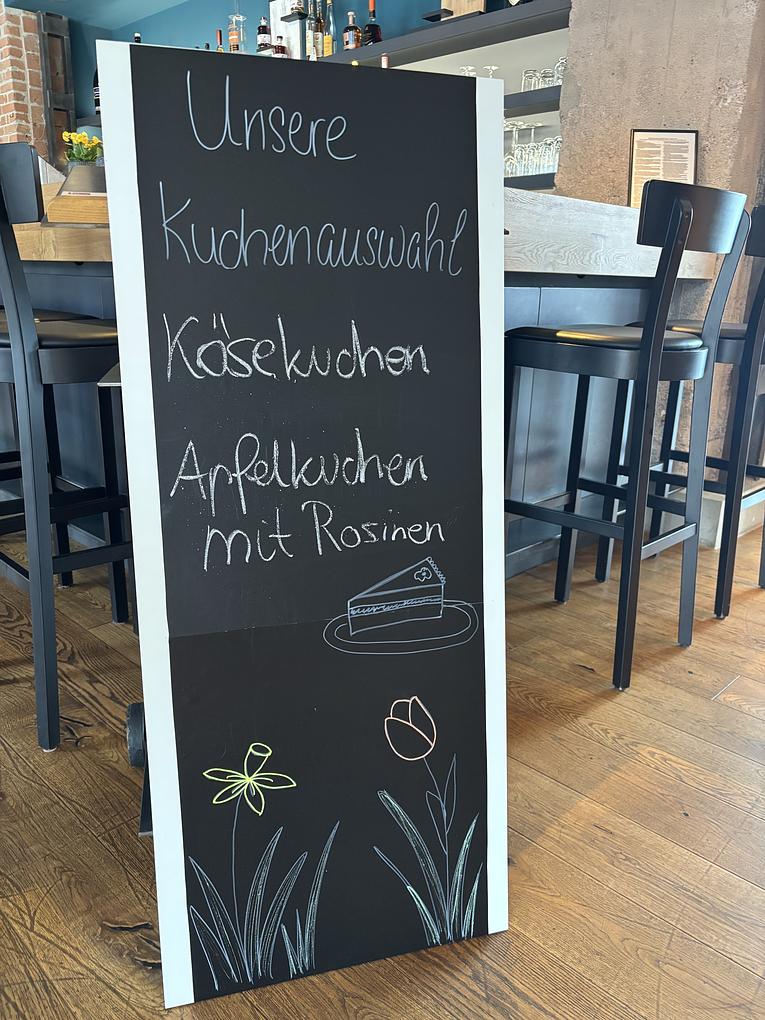 Unsere
Kuchenauswahl
Käsekuchen
Apfelkuchen
mit Rosinen